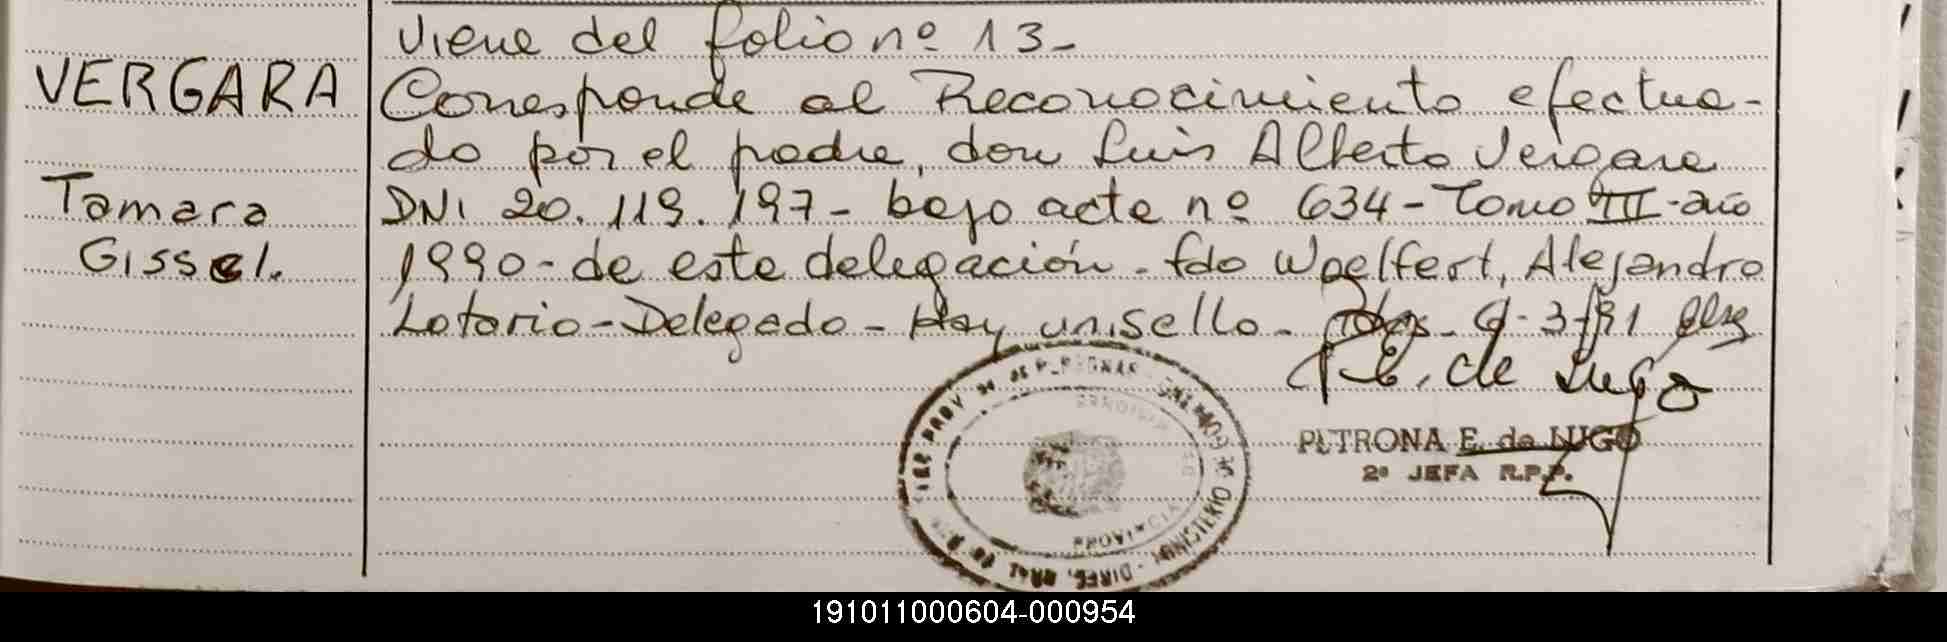 Viene del folio nº 13-
VERGARA
Corresponde al Reconocimiento efectua-
do por el padre, don Luis Alberto Vergara
Tamara
DNI 20.119.197- bajo acta nº 634-Tomo III-año
Gissel.
1990-de esta delegación. fdo Woelfert, Alejandro
Lotario-Delegado- Hay un sello. 3-91
P.E. de Lugo
PETRONA E. de LUGO
2ª JEFA R.P.P.
PROVINCIA
191011000604-000954